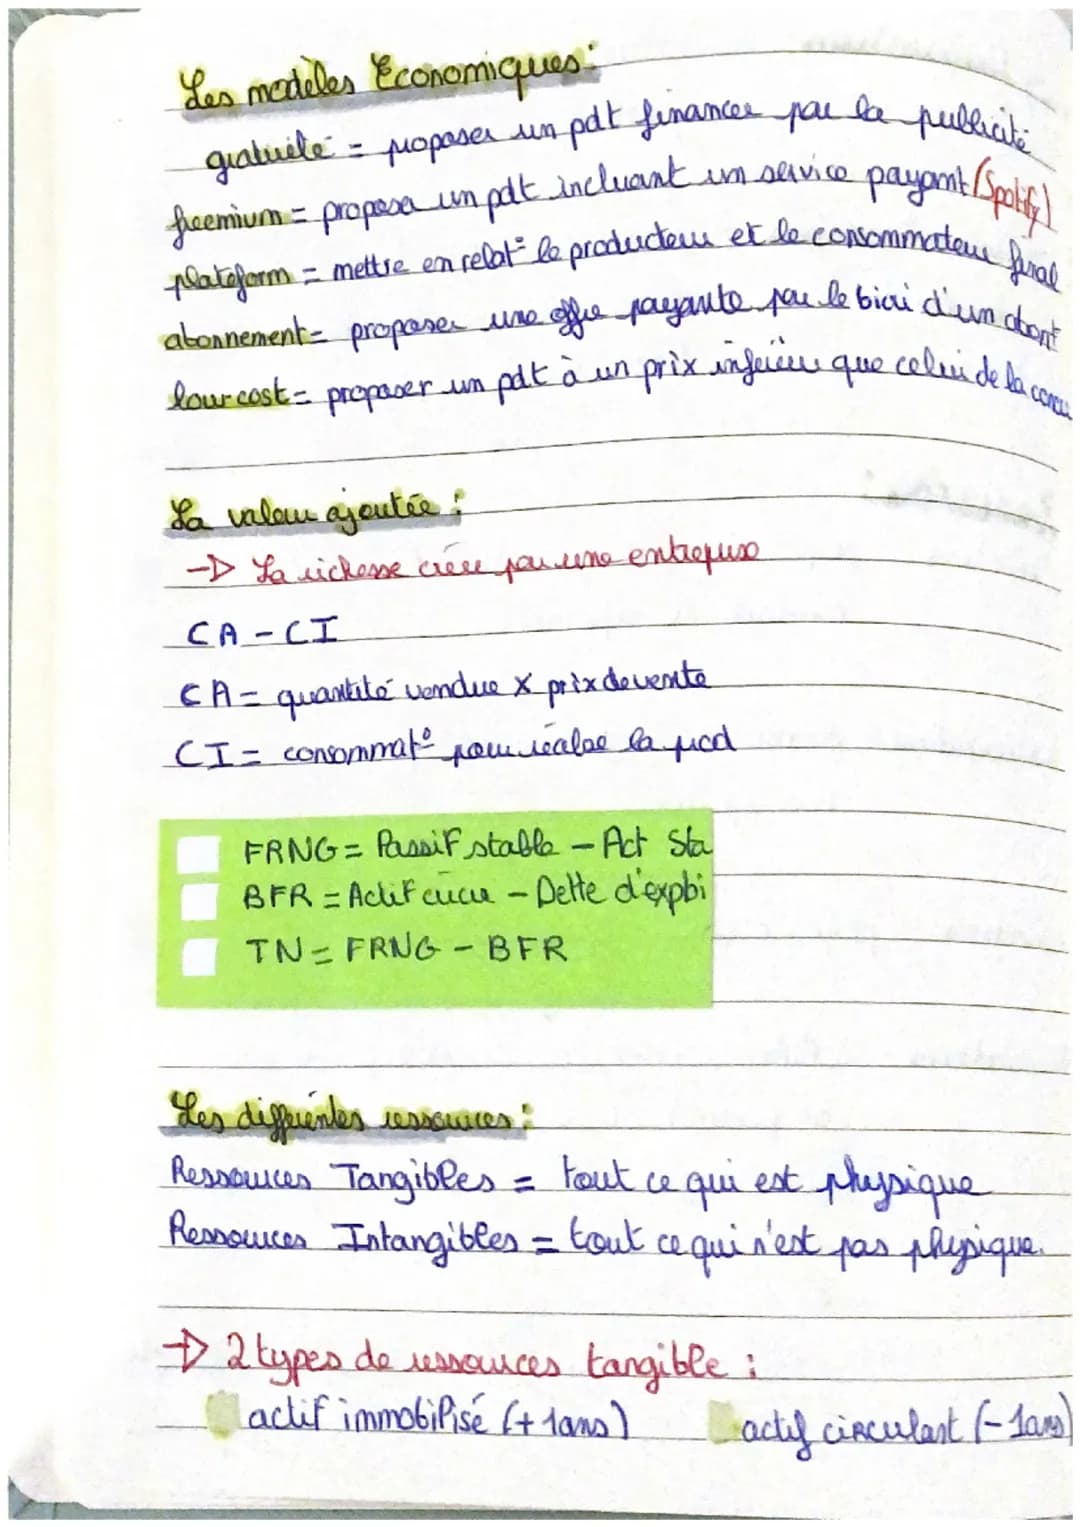 Les modèles Economiques:
gratuité = proposer un pdt financer par la publicité
freemium = proposer un pdt incluant un service payant (Spotify)
plateform = mettre en relat° le producteur et le consommateur final
abonnement = proposer une offre payante par le biai d'un abont
lowcost = proposer un pdt à un prix inférieur que celui de la concu
La valeur ajoutée :
→ La richesse créée par une entreprise
CA - CI
CA = quantité vendue x prix de vente
CI = consommat° pour réalise la prod
FRNG = Passif stable - Act Sta
BFR = Actif circu - Dette d'exploi
TN = FRNG - BFR
Les différentes ressources :
Ressources Tangibles = tout ce qui est physique
Ressources Intangibles = tout ce qui n'est pas physique.
→ 2 types de ressources tangible :
actif immobilisé (+ 1ans) actif circulant (- 1ans)